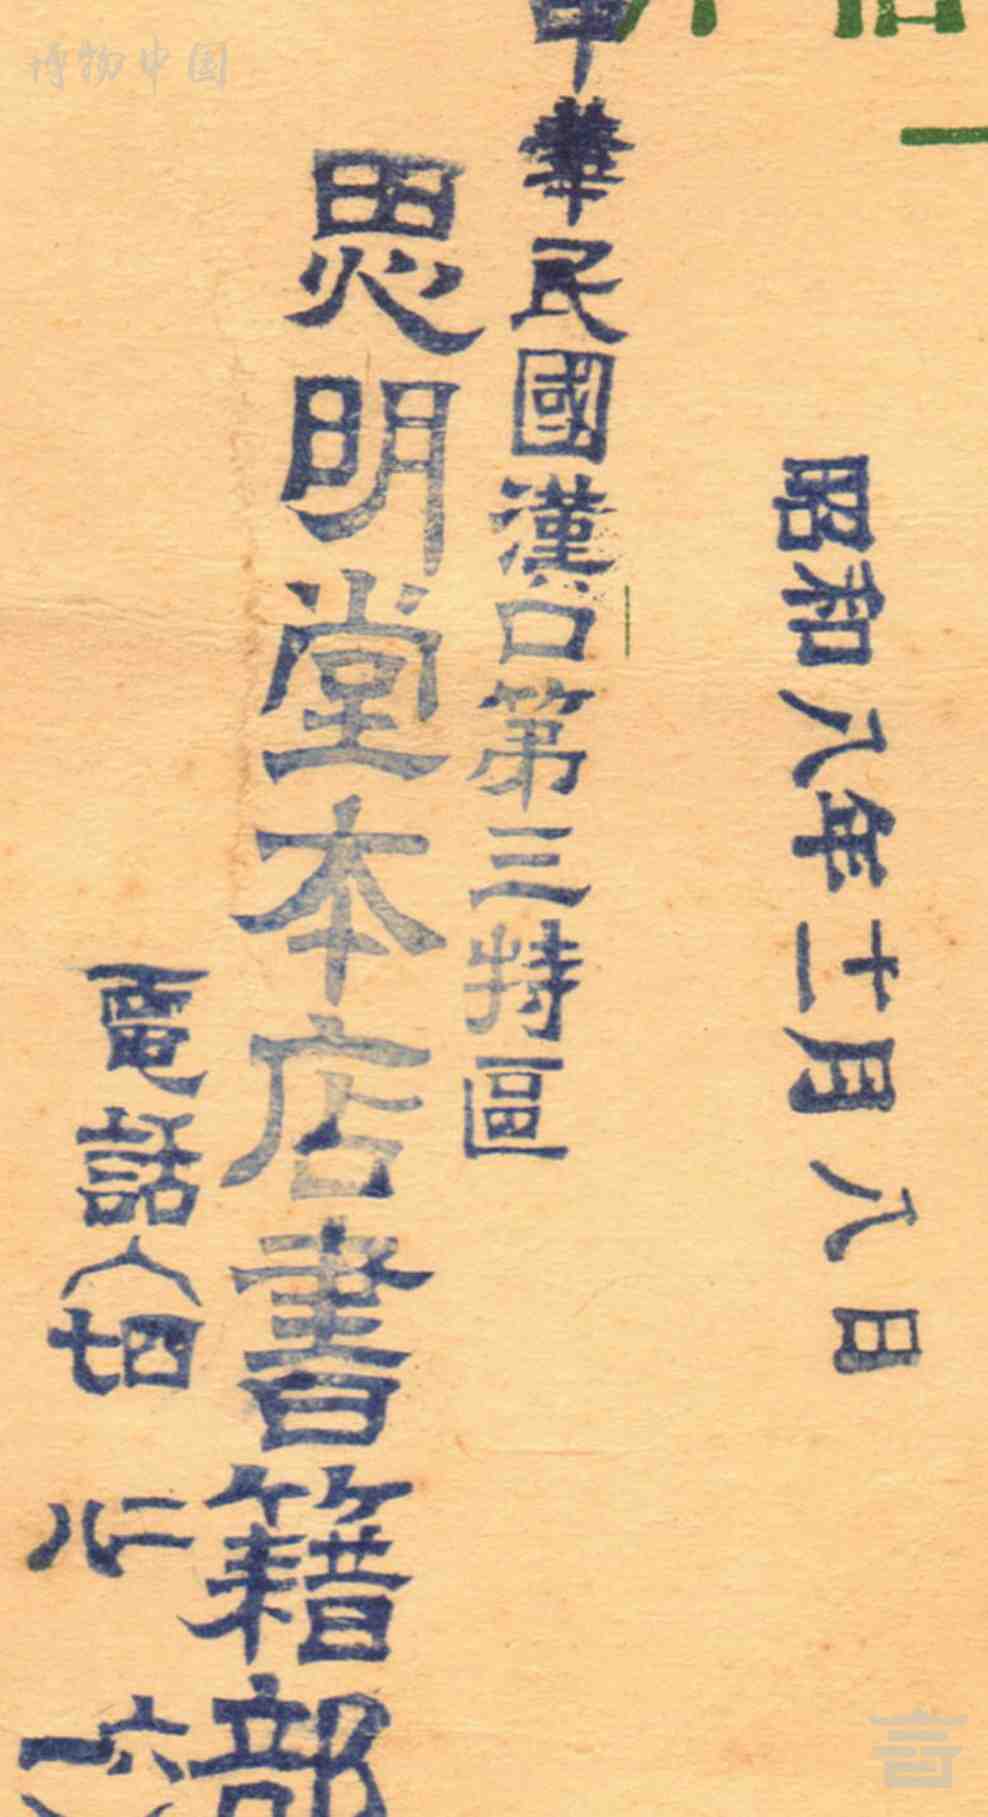 博物中国
昭和八年十二月八日
中華民國漢口第三特區
思明堂本店書籍部
電話(四二六
七八一)